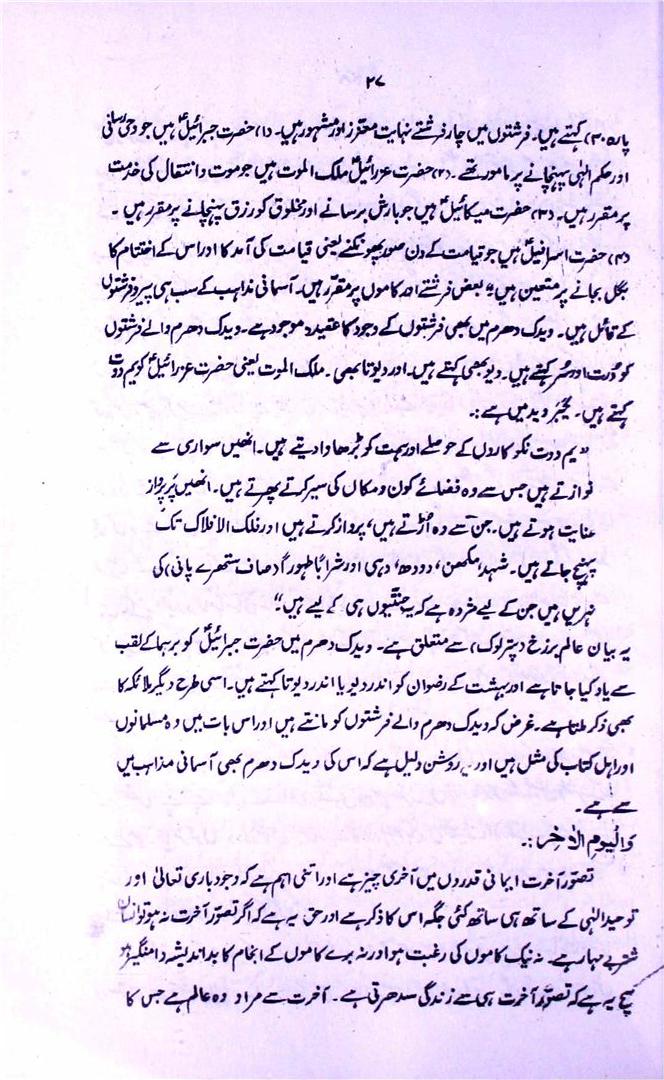 ۲۷
پارہ ۳۰) کہتے ہیں۔ فرشتوں میں چار فرشتے نہایت معزز اور مشہور ہیں۔ (۱) حضرت جبرائیلؑ ہیں جو وحی رسانی
اور حکم الٰہی پہنچانے پر مامور تھے۔ (۲) حضرت عزرائیلؑ ملک الموت ہیں جو موت و انتقال کی خدمت
پر مقرر ہیں۔ (۳) حضرت میکائیلؑ ہیں جو بارش برسانے اور مخلوق کو رزق پہنچانے پر مقرر ہیں۔
(۴) حضرت اسرافیلؑ ہیں جو قیامت کے دن صور پھونکنے یعنی قیامت کی آمد کا اور اس کے اختتام کا
بگل بجانے پر متعین ہیں۔ بعض فرشتے اور کاموں پر مقرّر ہیں۔ آسمانی مذاہب کے سب ہی پیرو فرشتوں
کے قائل ہیں۔ ویدک دھرم میں بھی فرشتوں کے وجود کا عقیدہ موجود ہے۔ ویدک دھرم والے فرشتوں
کو دُوت اور سُر کہتے ہیں۔ دیو بھی کہتے ہیں۔ اور دیوتا بھی۔ ملک الموت یعنی حضرت عزرائیلؑ کو یم دوت
کہتے ہیں۔ یجُر وید میں ہے :۔
"یم دوت نکوکاروں کے حوصلے اور ہمت کو بڑھاوا دیتے ہیں۔ انھیں سواری سے
نوازتے ہیں جس سے وہ فضائے کون و مکاں کی سیر کرتے پھرتے ہیں۔ انھیں پَر پرواز
عنایت ہوتے ہیں۔ جن سے وہ اُڑتے ہیں، پرواز کرتے ہیں اور فلک الافلاک تک
پہنچ جاتے ہیں۔ شہد، مکھن، دودھ، دہی اور شراباً طہورا (صاف ستھرے پانی) کی
نہریں ہیں جن کے لیے مژدہ ہے کہ یہ جنتیوں ہی کے لیے ہیں"
یہ بیان عالم برزخ (پتر لوک) سے متعلق ہے۔ ویدک دھرم میں حضرت جبرائیلؑ کو برہما کے لقب
سے یاد کیا جاتا ہے اور بہشت کے رضوان کو اندر دیو یا اندر دیوتا کہتے ہیں۔ اسی طرح دیگر ملائکہ کا
بھی ذکر ملتا ہے۔ غرض کہ ویدک دھرم والے فرشتوں کو مانتے ہیں اور اس بات میں وہ مسلمانوں
اور اہل کتاب کی مثل ہیں اور یہ روشن دلیل ہے کہ اس کی ویدک دھرم بھی آسمانی مذاہب میں
سے ہے۔
وَالْیَومِ الْاٰخِر :۔
تصوّر آخرت ایمانی قدروں میں آخری چیز ہے اور اتنی اہم ہے کہ وجود باری تعالیٰ اور
توحید الٰہی کے ساتھ ہی ساتھ کئی جگہ اس کا ذکر ہے اور حق یہ ہے کہ اگر تصوّر آخرت نہ ہو تو انسان
شتر بے مہار ہے۔ نہ نیک کاموں کی رغبت ہو اور نہ برے کاموں کے انجام کا بد اندیشہ دامنگیر ہو
سچ یہ ہے کہ تصوّر آخرت ہی سے زندگی سدھرتی ہے۔ آخرت سے مراد وہ عالم ہے جس کا